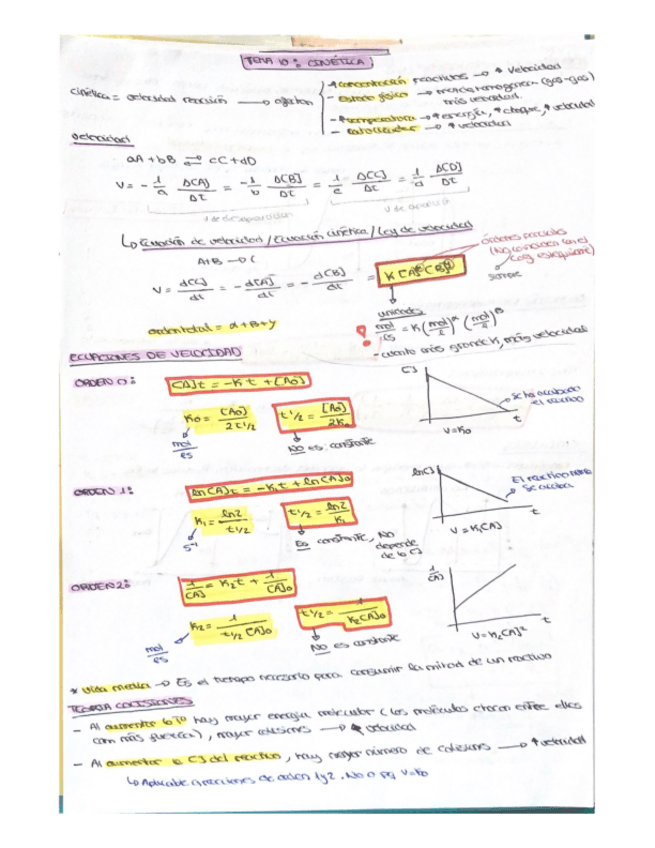 TEMA 10: CINÉTICA
cinética = velocidad reacción → afectan
- ↑ concentración reactivos → ↑ velocidad
- estado físico → mezcla homogénea (gas-gas) más velocidad.
- ↑ temperatura → ↑ energía, ↑ choque, ↑ velocidad
- catalizador → ↑ velocidad
velocidad
aA + bB ⇌ cC + dD
V = - 1/a Δ[A]/Δt = -1/b Δ[B]/Δt = 1/c Δ[C]/Δt = 1/d Δ[D]/Δt
v de desaparición
↳ Ecuación de velocidad / Ecuación cinética / Ley de velocidad
órdenes parciales
(No coinciden con el
coef estequiométr.)
siempre
A+B → C
V = d[C]/dt = - d[A]/dt = - d[B]/dt = K[A]^α [B]^β
unidades
mol/ls = K (mol/l)^α (mol/l)^β
orden total = α + β + γ
- cuanto más grande K, más velocidad
ECUACIONES DE VELOCIDAD
ORDEN 0:
[A]t = -K t + [A0]
K0 = [A0]/2t1/2
t1/2 = [A0]/2K0
mol/ls
NO es: constante
[]
t
V = K0
Se ha acabado
el reactivo
ORDEN 1:
ln[A]t = -K1t + ln[A]0
K1 = ln2/t1/2
t1/2 = ln2/K1
s⁻¹
Es constante, NO
depende
de la []
ln[]
t
V = K1[A]
El reactivo nunca
se acaba
ORDEN 2:
1/[A] = K2t + 1/[A]0
K2 = 1/t1/2 [A]0
t1/2 = 1/K2[A]0
mol/ls
NO es constante
1/[A]
t
V = K2[A]²
* Vida media → Es el tiempo necesario para consumir la mitad de un reactivo
TEORÍA COLISIONES
- Al aumentar la Tª hay mayor energía molecular (las moléculas chocan entre ellas
con más fuerza), mayor colisiones → ↑ velocidad
- Al aumentar la [] del reactivo, hay mayor número de colisiones → ↑ velocidad
↳ Aplicable a reacciones de orden 1 y 2. No 0 pq V=K0